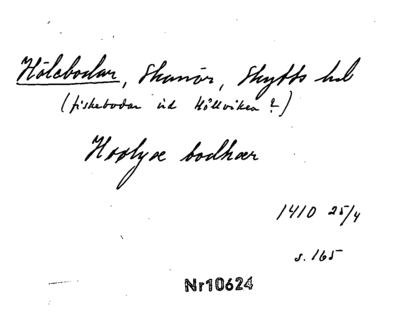 Hölebodar, Skanör, Skytts hd
(fiskebodar vid Höllviken?)
Hoolyæ bodhær
1410 25/4
s. 165
Nr10624